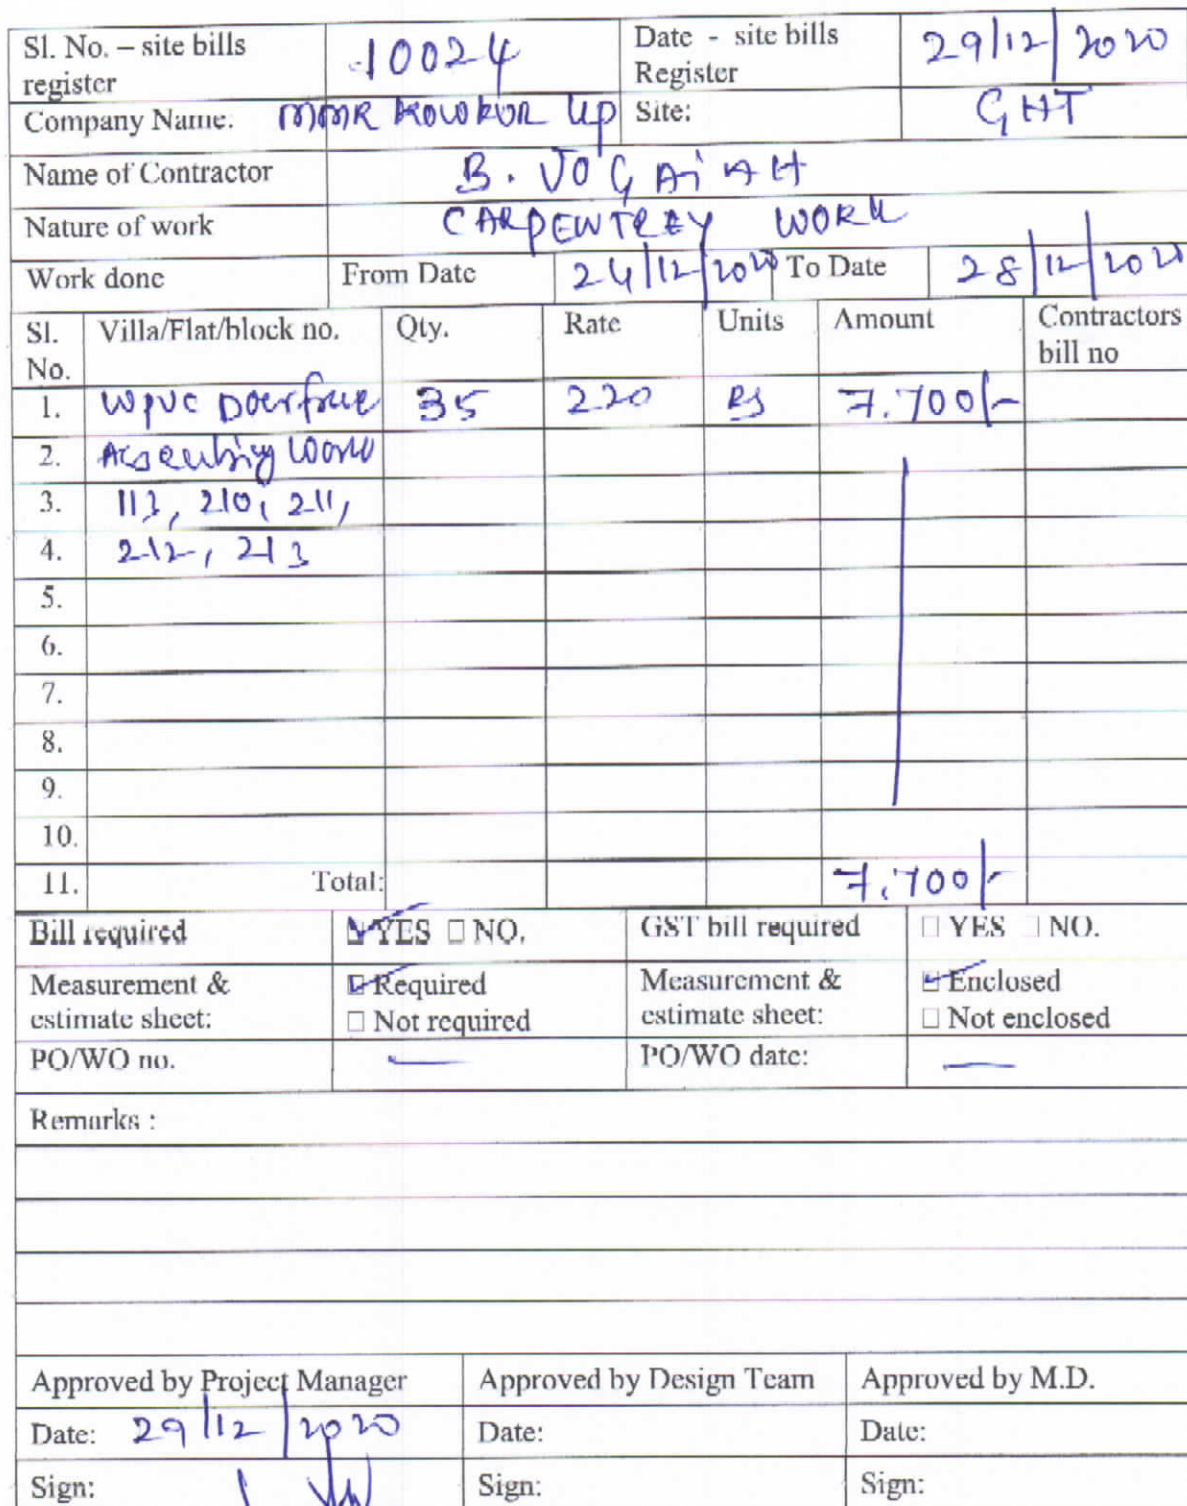 Sl. No. – site bills register 10024 Date - site bills Register 29/12/2020
Company Name: MMR KOWKUR LLP Site: GHT
Name of Contractor B. JOGAIAH
Nature of work CARPENTREY WORK
Work done From Date 24/12/2020 To Date 28/12/2020
Sl. No. Villa/Flat/block no. Qty. Rate Units Amount Contractors bill no
1. WPVC Door frame 35 220 7.700/-
2. Work
3. 113, 210, 211,
4. 212, 213
5.
6.
7.
8.
9.
10.
11. Total: 7.700/-
Bill required ☑ YES ☐ NO. GST bill required ☐ YES ☐ NO.
Measurement & estimate sheet: ☑ Required ☐ Not required Measurement & estimate sheet: ☑ Enclosed ☐ Not enclosed
PO/WO no. — PO/WO date: —
Remarks :
Approved by Project Manager Approved by Design Team Approved by M.D.
Date: 29/12/2020 Date: Date:
Sign: Sign: Sign: